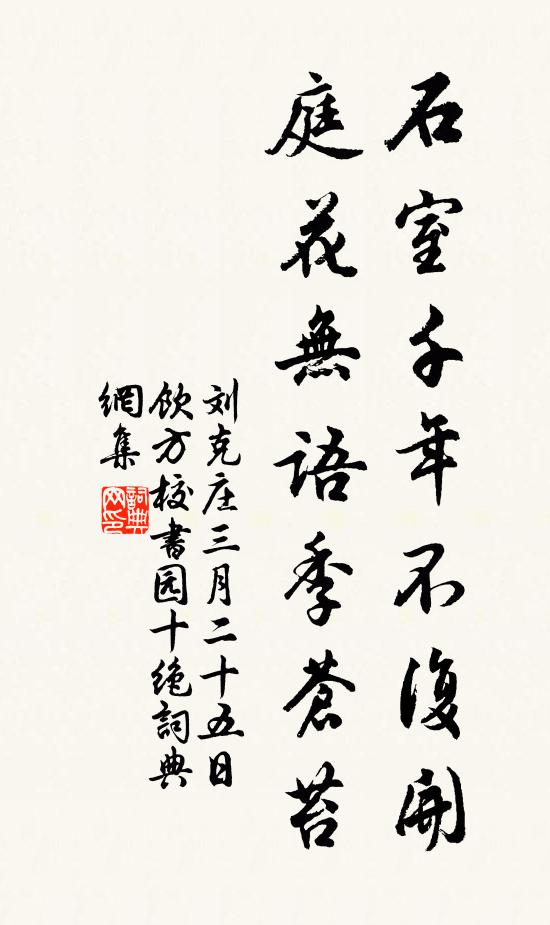 石室千年不復開
庭花無語季蒼苔
刘克庄三月二十五日
飲方校書园十絶詞典
網集
詞典
网印